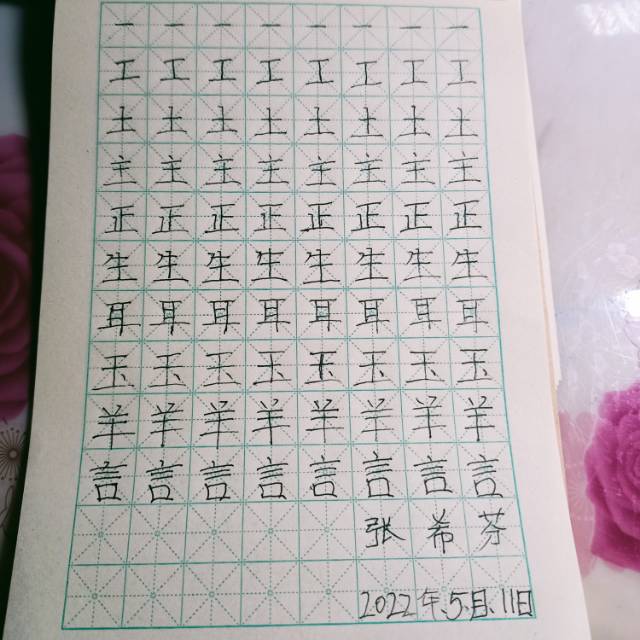 一 一 一 一 一 一 一 一
工 工 工 工 工 工 工 工
土 土 土 土 土 土 土 土
主 主 主 主 主 主 主 主
正 正 正 正 正 正 正 正
生 生 生 生 生 生 生 生
耳 耳 耳 耳 耳 耳 耳 耳
玉 玉 玉 玉 玉 玉 玉 玉
羊 羊 羊 羊 羊 羊 羊 羊
言 言 言 言 言 言 言 言
张 希 芬
2022年、5月、11日